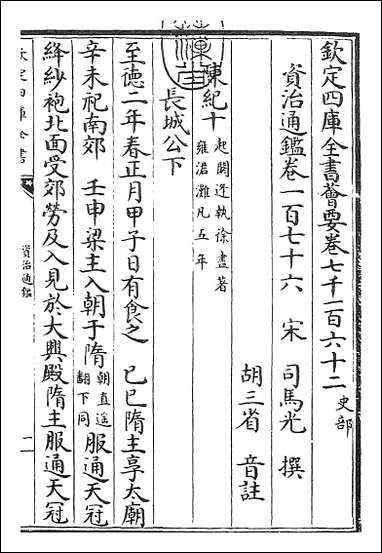 欽定四庫全書薈要卷七千一百六十二 史部
資治通鑑卷一百七十六 宋 司馬光 撰
胡三省 音註
陳紀十 起閼逢執徐盡著雍涒灘凡五年
長城公下
至德二年春正月甲子日有食之 己巳隋主享太廟
辛未祀南郊 壬申梁主入朝于隋朝直遥翻下同服通天冠
絳紗袍北面受郊勞及入見於大興殿隋主服通天冠
欽定四庫全書
資治通鑑
一